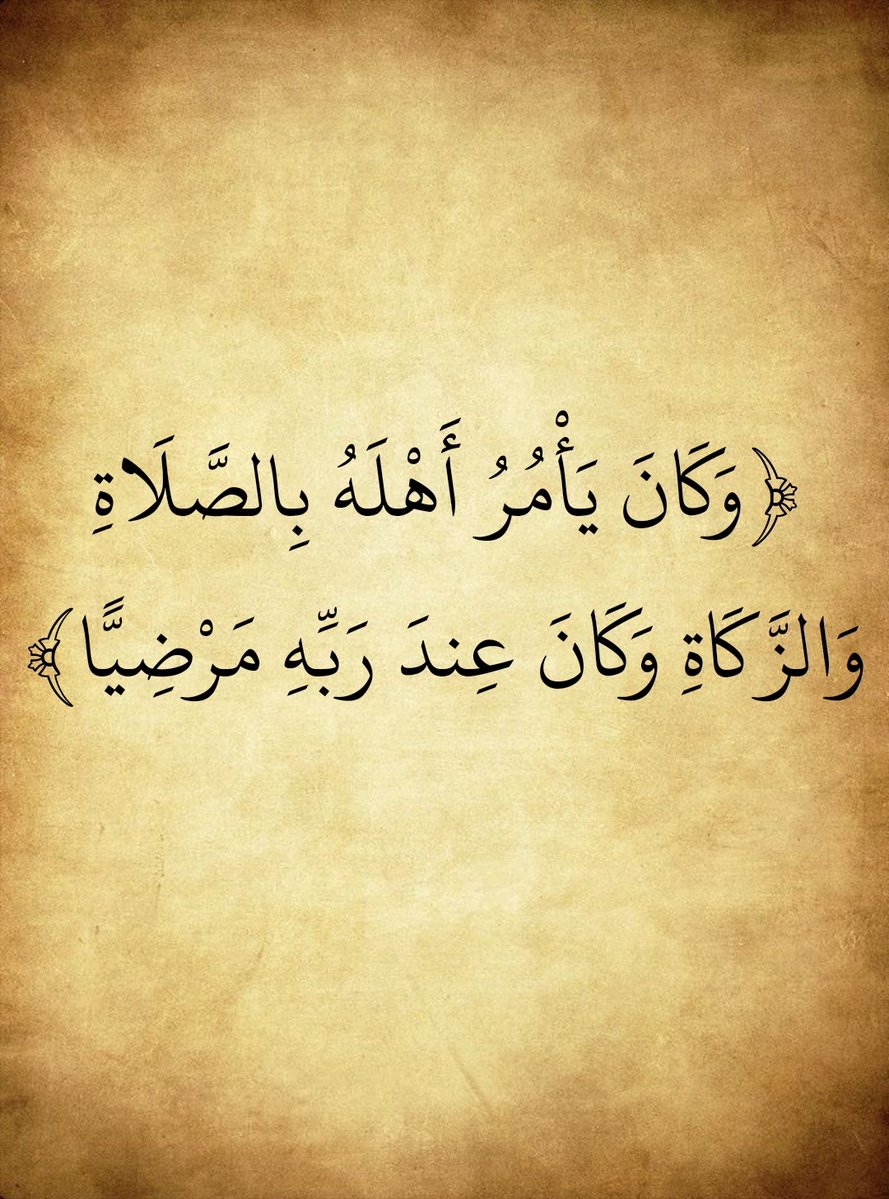 ﴿وَكَانَ يَأْمُرُ أَهْلَهُ بِالصَّلَاةِ
وَالزَّكَاةِ وَكَانَ عِندَ رَبِّهِ مَرْضِيًّا﴾